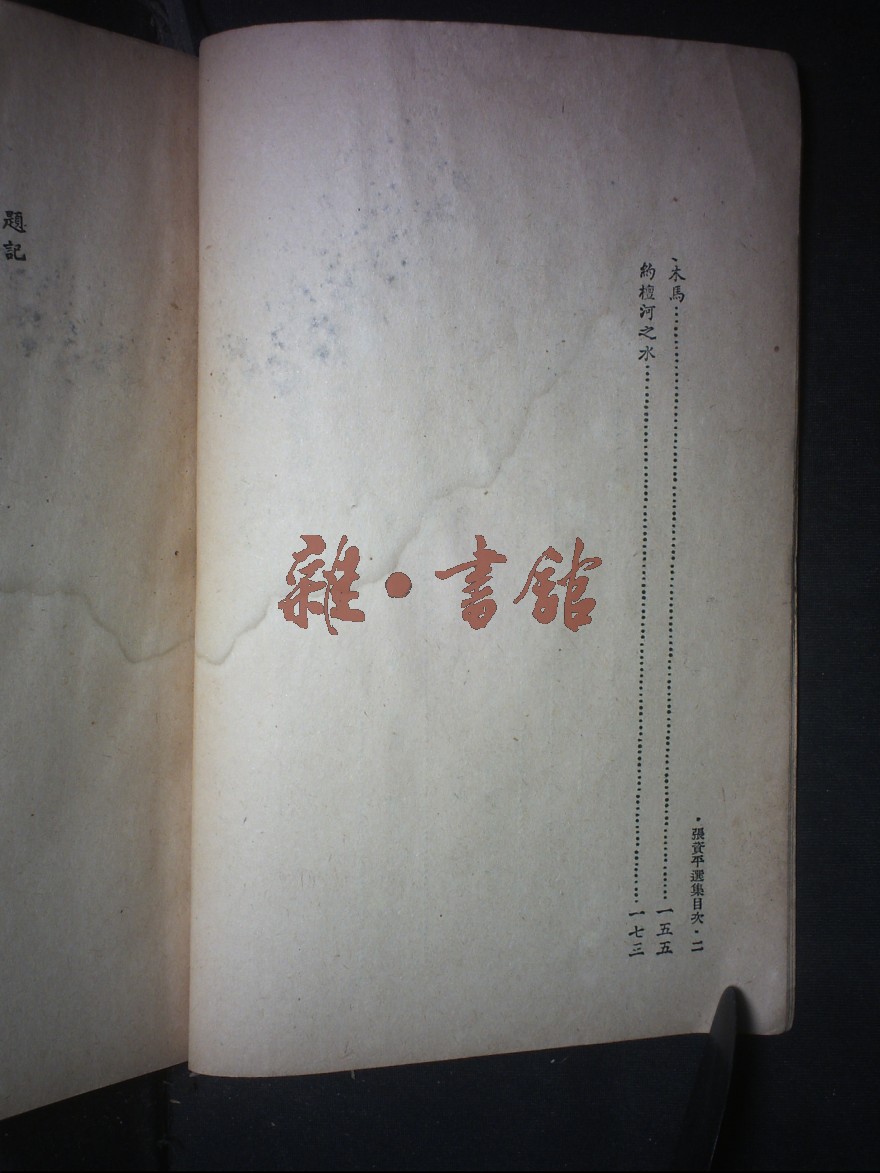 ·張資平選集目次·二
木馬……一五五
約檀河之水……一七三
雜·書館
題記